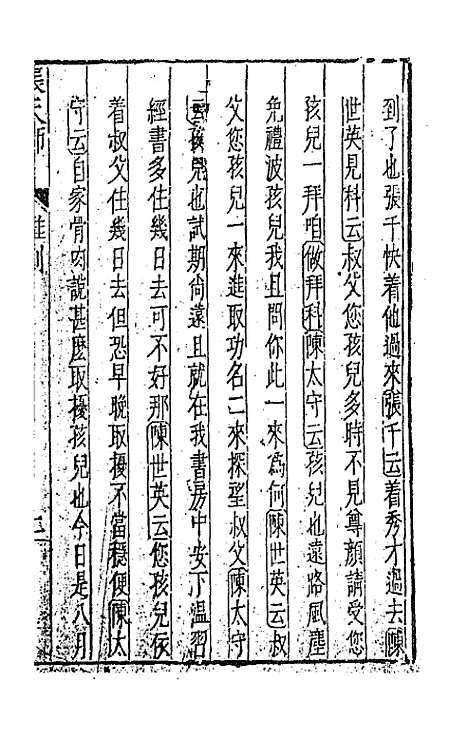 到了也張千快着他過來張千云着秀才過去陳
世英見科云叔父您孩兒多時不見尊顔請受您
孩兒一拜咱做拜科陳太守云孩兒也遠路風塵
免禮波孩兒我且問你此一來為何陳世英云叔
父您孩兒一來進取功名二來探望叔父陳太守
云孩兒也試期尚遠且就在我書房中安下溫習
經書多住幾日去可不好那陳世英云您孩兒依
着叔父住幾日去但恐早晚取擾不當穩便陳太
守云自家骨肉說甚麽取擾孩兒也今日是八月
張天師
雜劇